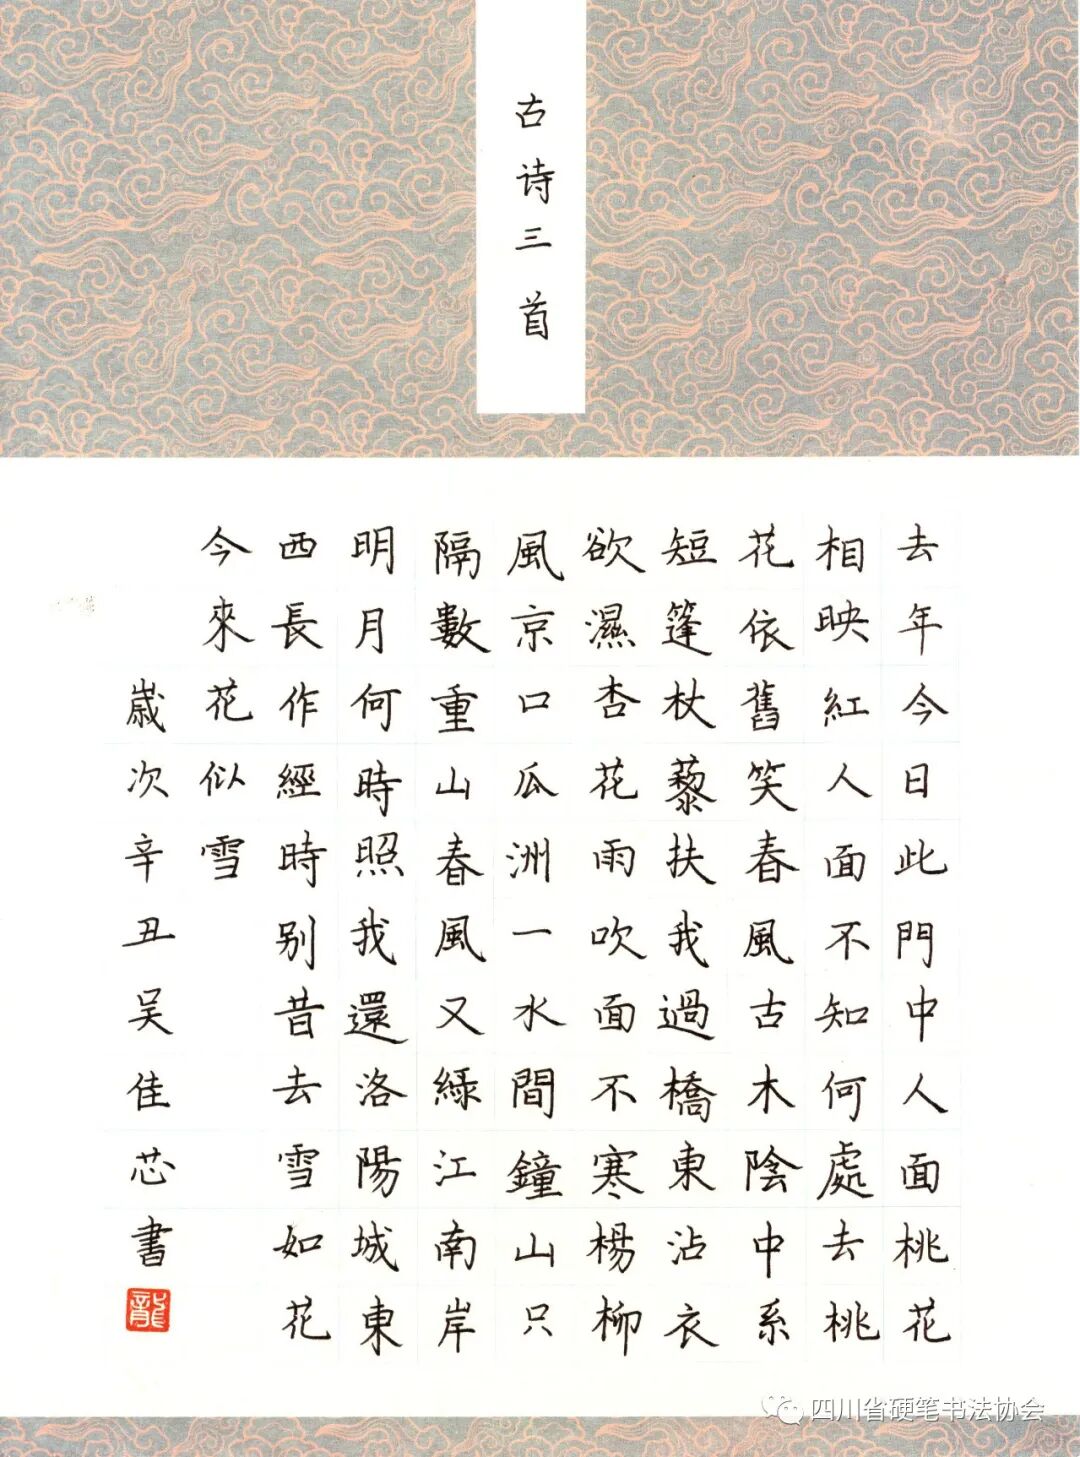 古诗三首
去年今日此門中人面桃花
相映紅人面不知何處去桃
花依舊笑春風古木陰中系
短篷杖藜扶我過橋東沾衣
欲濕杏花雨吹面不寒楊柳
風京口瓜洲一水間鐘山只
隔數重山春風又綠江南岸
明月何時照我還洛陽城東
西長作經時别昔去雪如花
今來花似雪
歲次辛丑吴佳芯書
龍
四川省硬笔书法协会